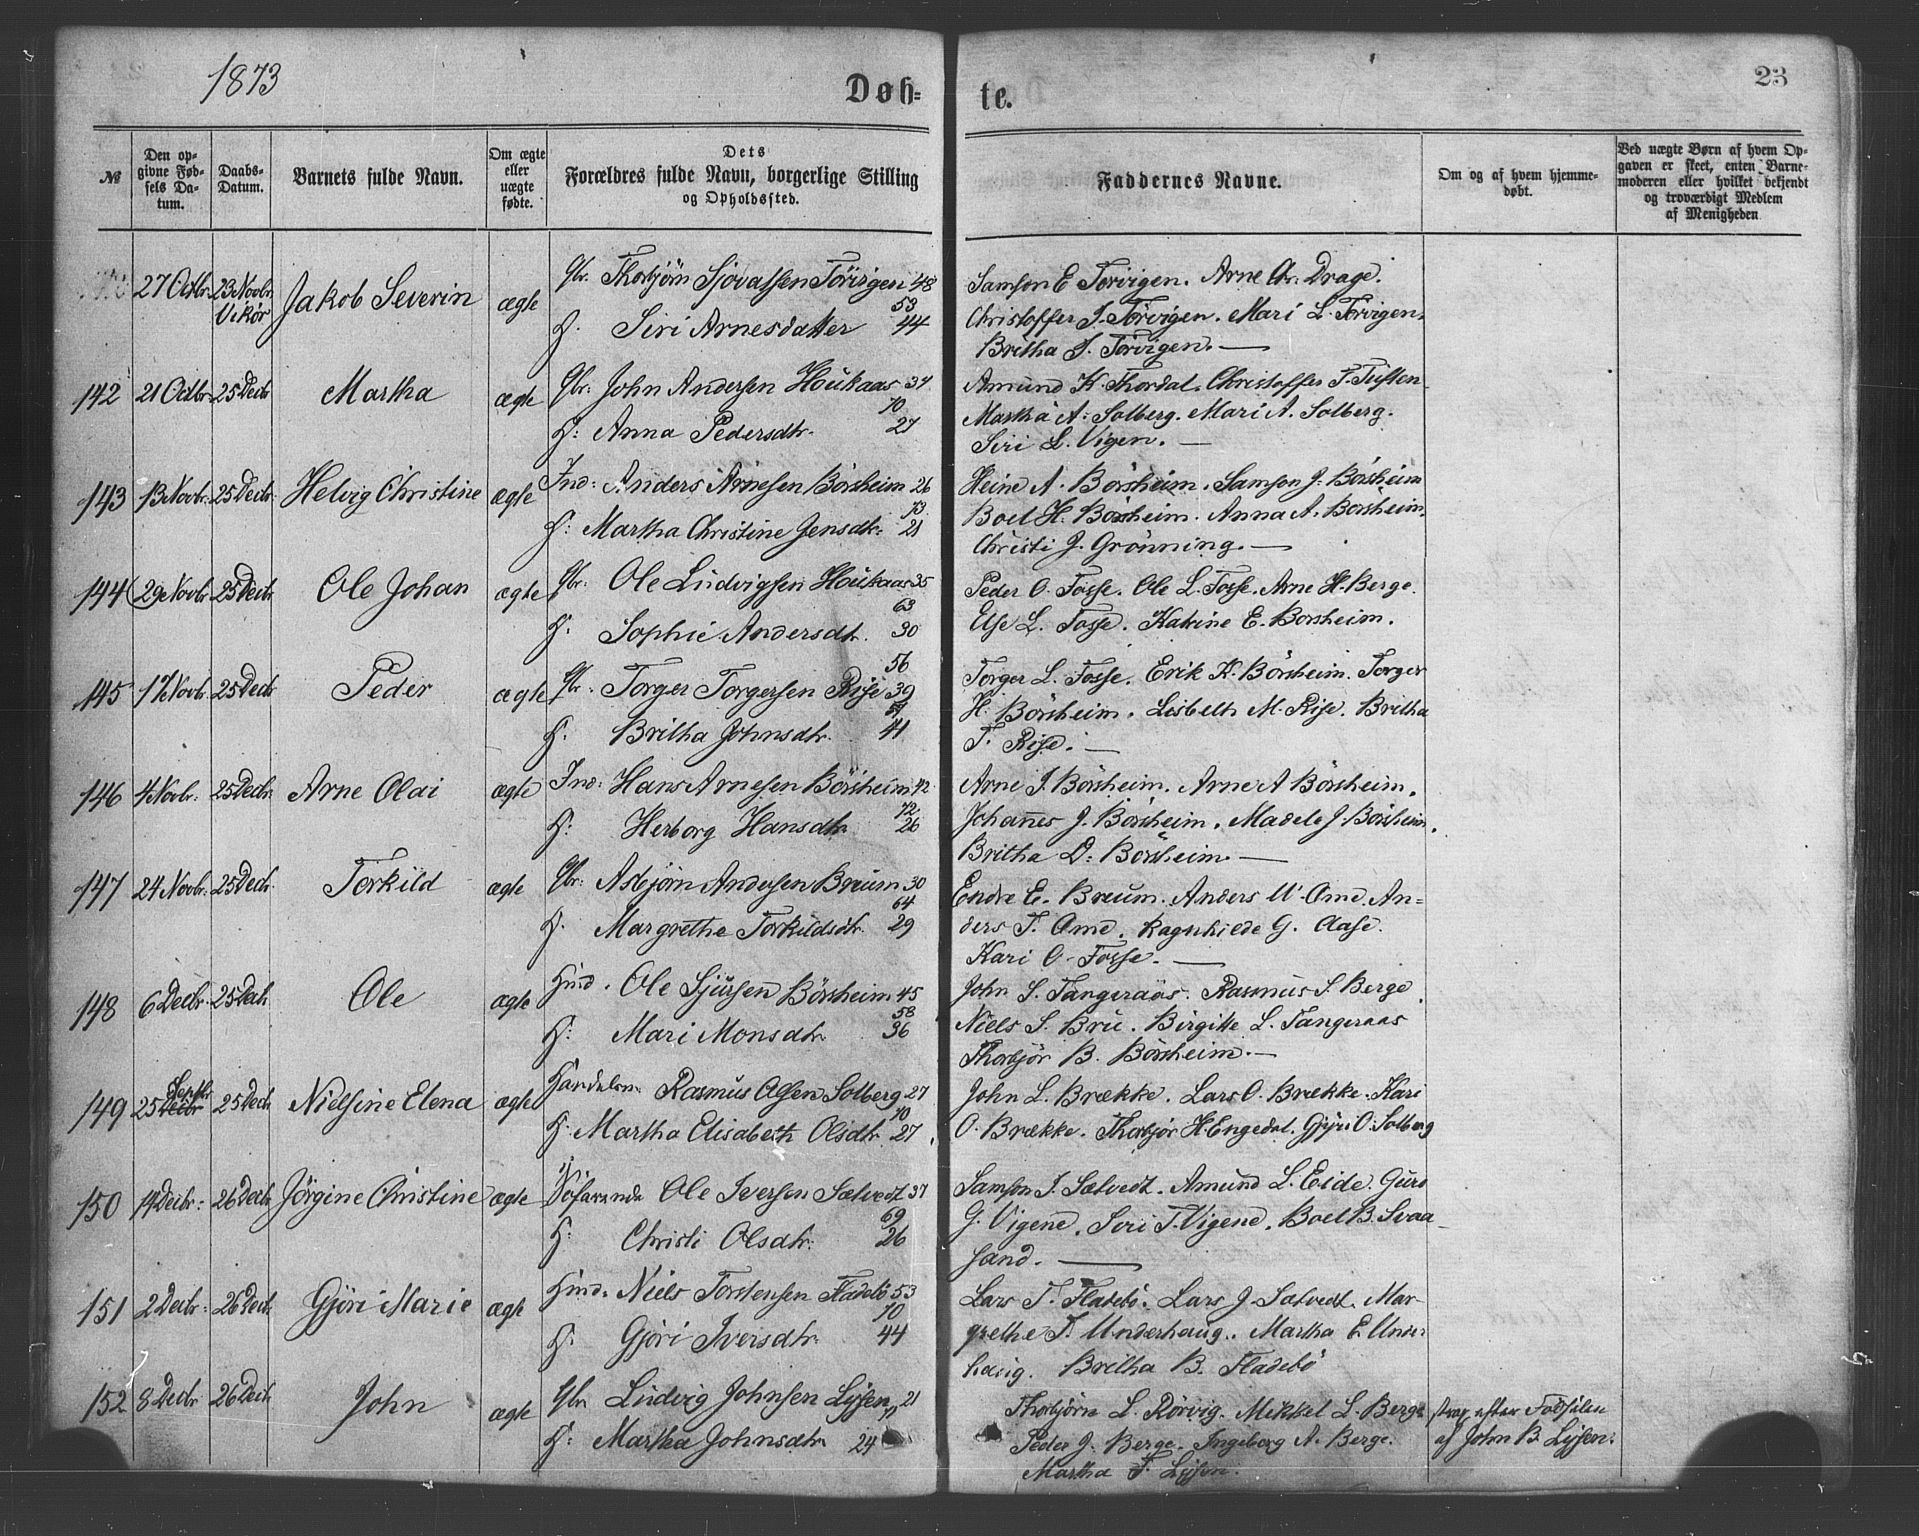 1873
Døb=
te.
23
№
Den op-
givne Fød-
sels Da-
tum.
Daabs-
Datum.
Barnets fulde Navn.
Om ægte
eller
uægte
fødte.
Dets
Forældres fulde Navn, borgerlige Stilling
og Opholdssted.
Faddernes Navne.
Om og af hvem hjemme-
døbt.
Ved uægte Børn af hvem Op-
gaven er skeet, enten Barne-
moderen eller hvilket bekjendt
og troværdigt Medlem
af Menigheden
27 Octbr. 23 Novbr. Vikör Jakob Severin ægte
Gbr. Thorbjörn Sjovatsen Törvigen 48
53
H. Siri Arnesdatter 44
Samson E Torvigen. Arne Chr. Drage.
Christoffer J. Törvigen. Mari L. Törvigen.
Britha J. Törvigen. —
142 21 Octbr. 25 Decbr Martha ægte
Gbr: John Andersen Houkaas 34
70
H: Anna Pedersdtr. 27
Amund K. Thordal. Christoffer T. Tuften
Martha A. Solberg. Mari A. Solberg.
Siri L. Vigen. —
143 13 Novbr. 25 Decbr. Helvig Christine ægte
Ind: Anders Arnesen Börsheim 26
73
H: Martha Christine Jensdtr. 21
Heine A. Börsheim. Samson J. Börsheim
Boel H. Börsheim. Anna A. Borsheim.
Christi J. Grönning. —
144 29 Novbr 25 Decbr. Ole Johan ægte
Gbr: Ole Ludvigsen Houkaas 35
63
H. Sophie Andersdtr. 30
Peder O. Fosse. Ole L. Fosse. Arne H. Berge.
Else L. Fosse. Katrine E. Borsheim.
145 17 Novbr. 25 Decbr Peder ægte
56
Gbr: Torger Torgersen Rise 39
H. Britha Johnsdtr. 41
Torger L. Fosse. Erik K. Börsheim. Torger
H. Börsheim. Lisbeth M. Rise. Britha
T. Rise. —
146 4 Novbr. 25 Decbr. Arne Olai ægte
Ind: Hans Arnesen Börsheim 42
72
H: Herborg Hansdtr 26
Arne J. Börsheim. Arne A Börsheim.
Johannes J. Börsheim. Madele J. Börsheim.
Britha D. Börsheim. —
147 24 Novbr. 25 Decbr. Torkild ægte
Gbr: Asbjörn Andersen Breum 30
64
H. Margrethe Torkildsdtr. 29
Endre E. Breum. Anders N. Ome. An-
ders T. Ome. Ragnhilde G. Aase.
Kari O. Fosse. —
148 6 Decbr. 25 Decbr Ole ægte
Hmd. Ole Sjursen Börsheim 45
58
H: Mari Monsdtr. 36
John S. Tangeraas. Rasmus S. Berge.
Niels S. Bru. Birgitte L. Tangeraas
Thorbjör B. Börsheim. —
149 25 Decbr Septbr 25 Decbr Nielsine Elena ægte
Handelsm. Rasmus Olsen Solberg 27
70
H. Martha Elisabeth Olsdtr. 27
John L. Brække. Lars O. Brække. Kari
O. Brække. Thorbjör H. Engedal. Gjöri O. Solberg
150 14 Decbr: 26 Decbr Jörgine Christine ægte
Söfarende Ole Iversen Sætvedt 37
69
H: Christi Olsdtr. 26
Samson J. Sætvedt. Amund L. Eide. Guro
G. Vigene. Siri T. Vigene. Boel B. Svaa-
sand. —
151 2 Decbr: 26 Decbr. Gjöri Marie ægte
Hmd. Niels Torstensen Fladebö 53
70
H. Gjöri Iversdtr. 44
Lars T. Fladebö. Lars J. Sætvedt. Mar-
grethe T. Underhaug. Martha E. Under
haug. Britha B. Fladebö
152 8 Decbr 26 Decbr John ægte
Gbr. Ludvig Johnsen Lysen 21
H: Martha Johnsdtr 24
Thorbjörn L. Rörvig. Mikkel L. Berge
Peder J. Berge. Ingeborg A. Berge.
Martha T. Lysen.
strax efter Födselen
af John B. Lysen.